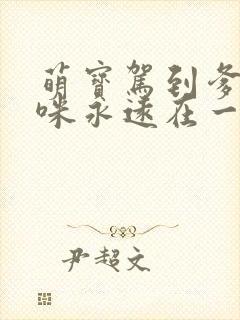 萌寶駕到爹
咪永遠在一
尹超文